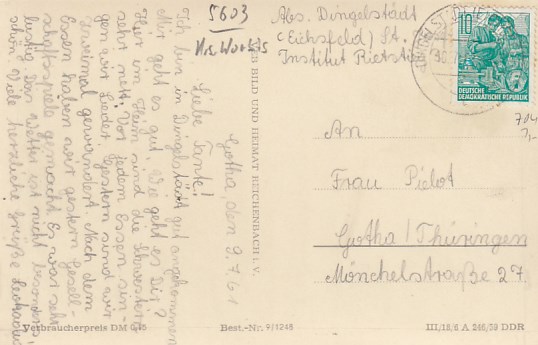 5603
Abs. Dingelstädt
(Eichsfeld) St.
Institut
10
DEUTSCHE
DEMOKRATISCHE REPUBLIK
An
Frau Pielot
Gotha/Thüringen
Mönchelstraße 27
BILD UND HEIMAT REICHENBACH i. V.
Gotha, den 9.7.61
Liebe Tante!
Ich bin in Dingelstädt gut angekommen.
Mir geht es gut. Wie geht es dir?
Hier im Heim sind die Schwestern
sehr nett. Vor jedem Essen sin-
gen wir Lieder. Gestern sind wir
zweimal gewandert. Nach dem
Essen haben wir gestern Gesell-
schaftsspiele gemacht. Es war sehr
lustig. Das Wetter ist nicht besonders
schön. Viele herzliche Grüße
Verbraucherpreis DM
Best.-Nr. 9/1248
III/18/6 A 246/59 DDR